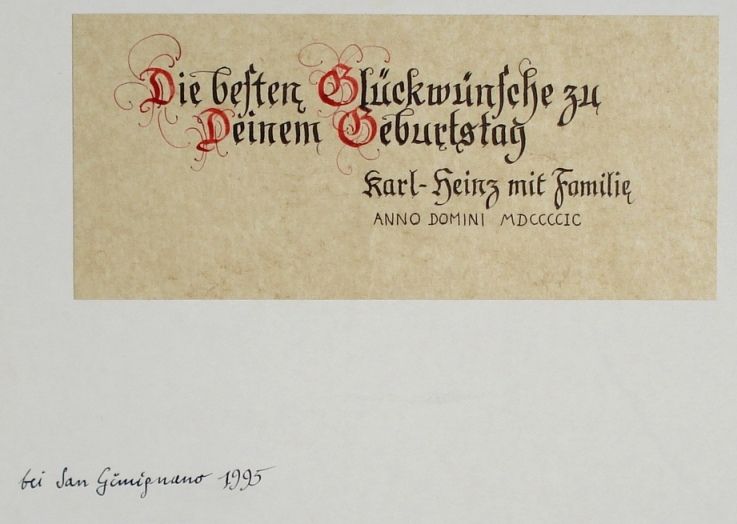 Die besten Glückwünsche zu
Deinem Geburtstag
Karl-Heinz mit Familie
ANNO DOMINI MDCCCCIC
bei San Gimignano 1995